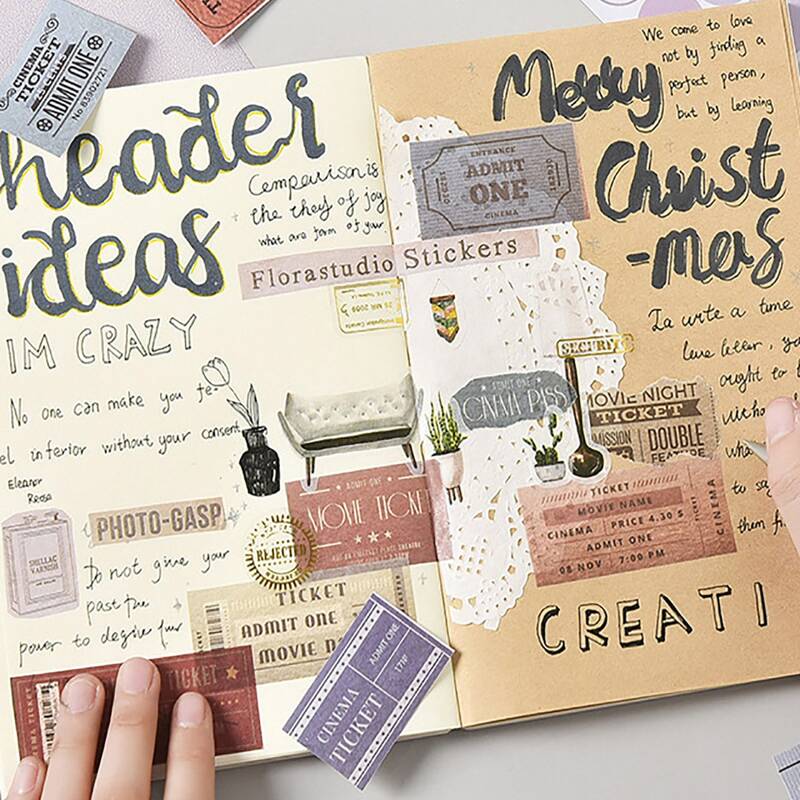 CINEMA
TICKET
ADMIT ONE
No.83902721
header
ideas
Comparison is
the they of joy
what are form of your
Florastudio Stickers
IM CRAZY
No one can make you fe-
el inferior without your consent
Eleanor
Roosa
SHELLAC
VARNISH
PHOTO-GASP
Do not give your
past the
power to define
ADMIT ONE
MOVIE TICKET
REJECTED
TICKET
ADMIT ONE
MOVIE
TICKET
ADMIT ONE
CINEMA
TICKET
Merry
Christ
-mas
We come to love
not by finding a
perfect person,
but by learning
ENTRANCE
ADMIT
ONE
CINEMA
SECURITY
ADMIT ONE
MOVIE NIGHT
TICKET
DOUBLE
FEATURE
TICKET
MOVIE NAME
CINEMA PRICE 4.30 $
ADMIT ONE
08 NOV 7:00 PM
CINEMA
write a time
love letter, yo
ought to
wha
to sa
them
CREATI